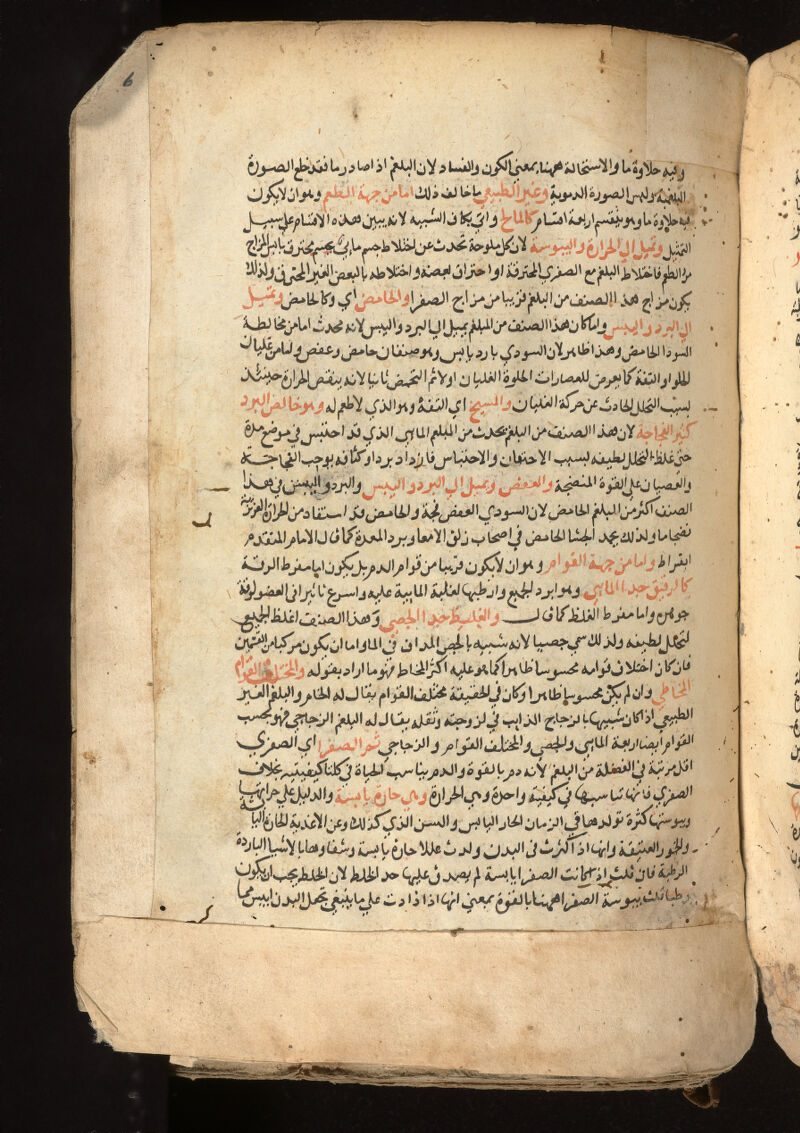 6
وفيه حلاوة ما والاستحالة ههنا بمعنى الكون والفساد لان البلغم اذا صار دما فقد خلع الصورة
البلغمية ولبس الصورة الدموية وغير الطبيعي ما خالف ذلك اما من جهة الطعم وهو ان لا يكون
فيه حلاوة ما وهو ينقسم اربعة اقسام كالمالح واتى بكاف التشبيه لانه يبين هذه الاقسام على سبيل
التمثيل وتميل الى الحرارة واليبوسة لان كل ملوحة تحدث عن اختلاط جسم مائي بجسم محترق يابس المزاج
مر الطعم فاختلاط البلغم مع الصفرى المحترقة او احتراق لبعضه واختلاطه بالبعض الغير المحترق ولذلك
يكون مزاج هذا الصنف من البلغم قريبا من مزاج الصفرا والحامض اي وكالحامض وتميل
الى البرد واليبس وانما كان هذا الصنف من البلغم يميل الى البرد واليبس لانه يحدث اما من مخالطة
السودا الحامض وهذا ظاهر لان السودي بارد يابس وهو صنفان حامض وعفص واما من غليان
الحلو او التفه كما يعرض للعصارات الحلوة الغليان اولا ثم التحمض ثانيا لانه ينقص الحرارة حينئذ
لسبب التحلل الحادث عن حركة الغليان والمسيخ اي التفه وهو الذي لا طعم له وهو خالص البرد
كثير الفجاجة لان هذا الصنف من البلغم يحدث من البلغم المائي الذي قد احتبس في موضع مدة
حتى غلظ لتحلل لطيفه لسبب الاحتقان والاحتباس فازداد بردا وكثافة يوجب الفجاجة
والعصيان على القوة المنضجة والعفص ويميل الى البرد واليبس والبرد واليبس في هذا
الصنف اكثر من البلغم الحامض لان السودي العفص فجة والحامض قد استفاد من الحرارة الغريزية
نضجا ما ولذلك يحمد الجشا الحامض في اصحاب زلق الامعا وبرد المعدة كما قال الامام المتقدم
ابقراط واما من جهة القوام وهو ان لا يكون قريبا من قوام الدم بل يكون اما مفرط الرقة
كالرقيق جدا المائي وهو ابرد الجميع وارطبها لغلبة المائية عليه واسرع تاثيرا في العضو لرقة
جوهره واما مفرط الغلظ كما قال والغليظ جدا الجصي وهذا الصنف اغلظ الجميع
لتحلل لطيفه ولذلك سمي جصيا لانه شبيه بالجص المداف في الما واما ان يكون مركبا من القسمين
فان كان اختلاف قوامه محسوسا ظاهرا كما هو عليه اكثر المخاط فهو ما اراد بقوله والمختلف القوام
المخاطي وان لم يكن محسوسا ظاهرا وكان في الحقيقة مختلف القوام يقال له الخام والبلغم الغير
الطبيعي اذا كان شبيها بالزجاج الذايب في لزوجته وثقله يقال له البلغم الزجاجي فهو بحسب
القوام ايضا اربعة المائي والجصي والمختلف القوام والزجاجي ثم الصفرا اي الصفرى
اقل مرتبة في الفضلة من البلغم لانه دم بالقوة والدم يناسب الحياة في كلتا كيفيتيه بخلاف
الصفرى فانها تناسبها في كيفية واحدة وهي الحرارة وهي حارة يابسة والدليل على حرارتها
ويبوستها كثرة تولدها في الزمان الحار اليابس والسن الذي كذلك وعن الاغذية الحارة اليابسة
والخمور العتيقة وانها اذا كثرت في البدن ولدت عللا حارة يابسة وشفاوها بالاشيا الباردة
الرطبة فان قلت اذ كانت الصفرا يابسة لم يصدق عليها حد الخلط لان الخلط يجب ان يكون
رطبا قلت يبوسة الصفرا ههنا بالقوة بمعنى انها اذا زادت على ما ينبغي تجعل البدن ايبس مما